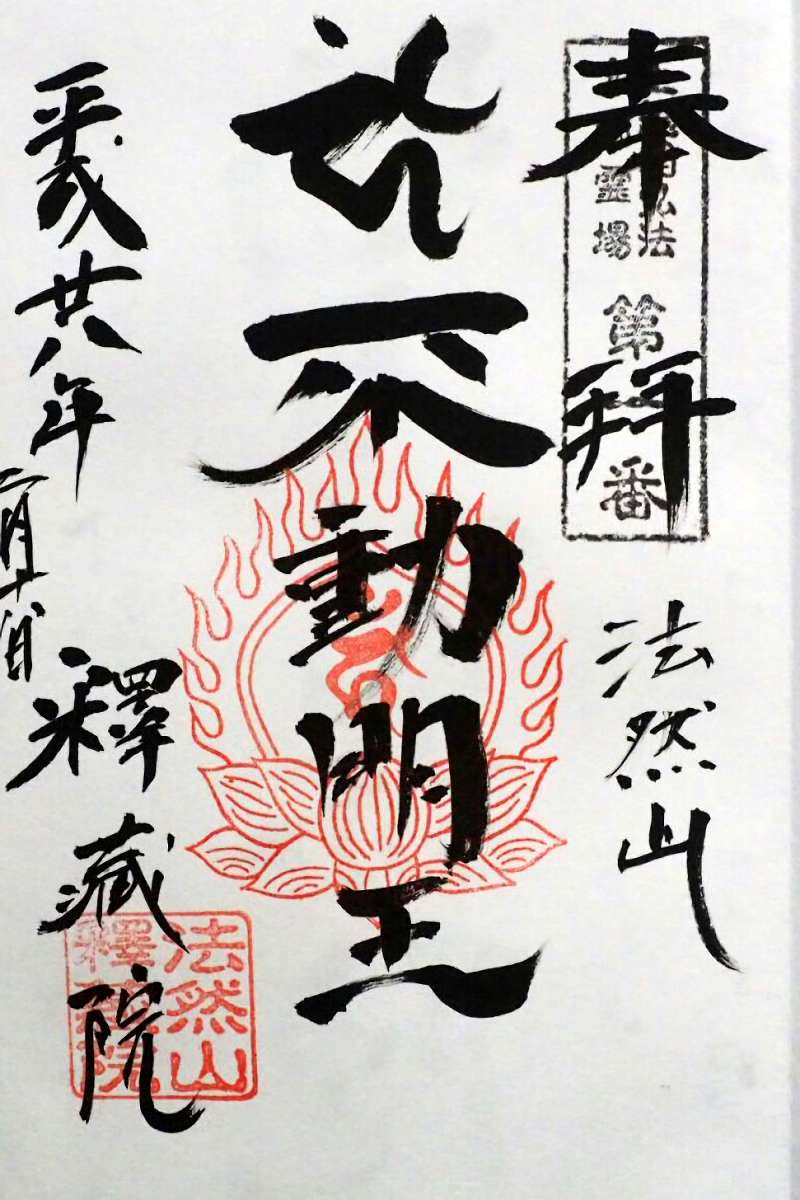 奉拝
法
霊場
第
番
法然山
不動明王
平成廿八年
二月十
釋蔵院
法然山
釋蔵院